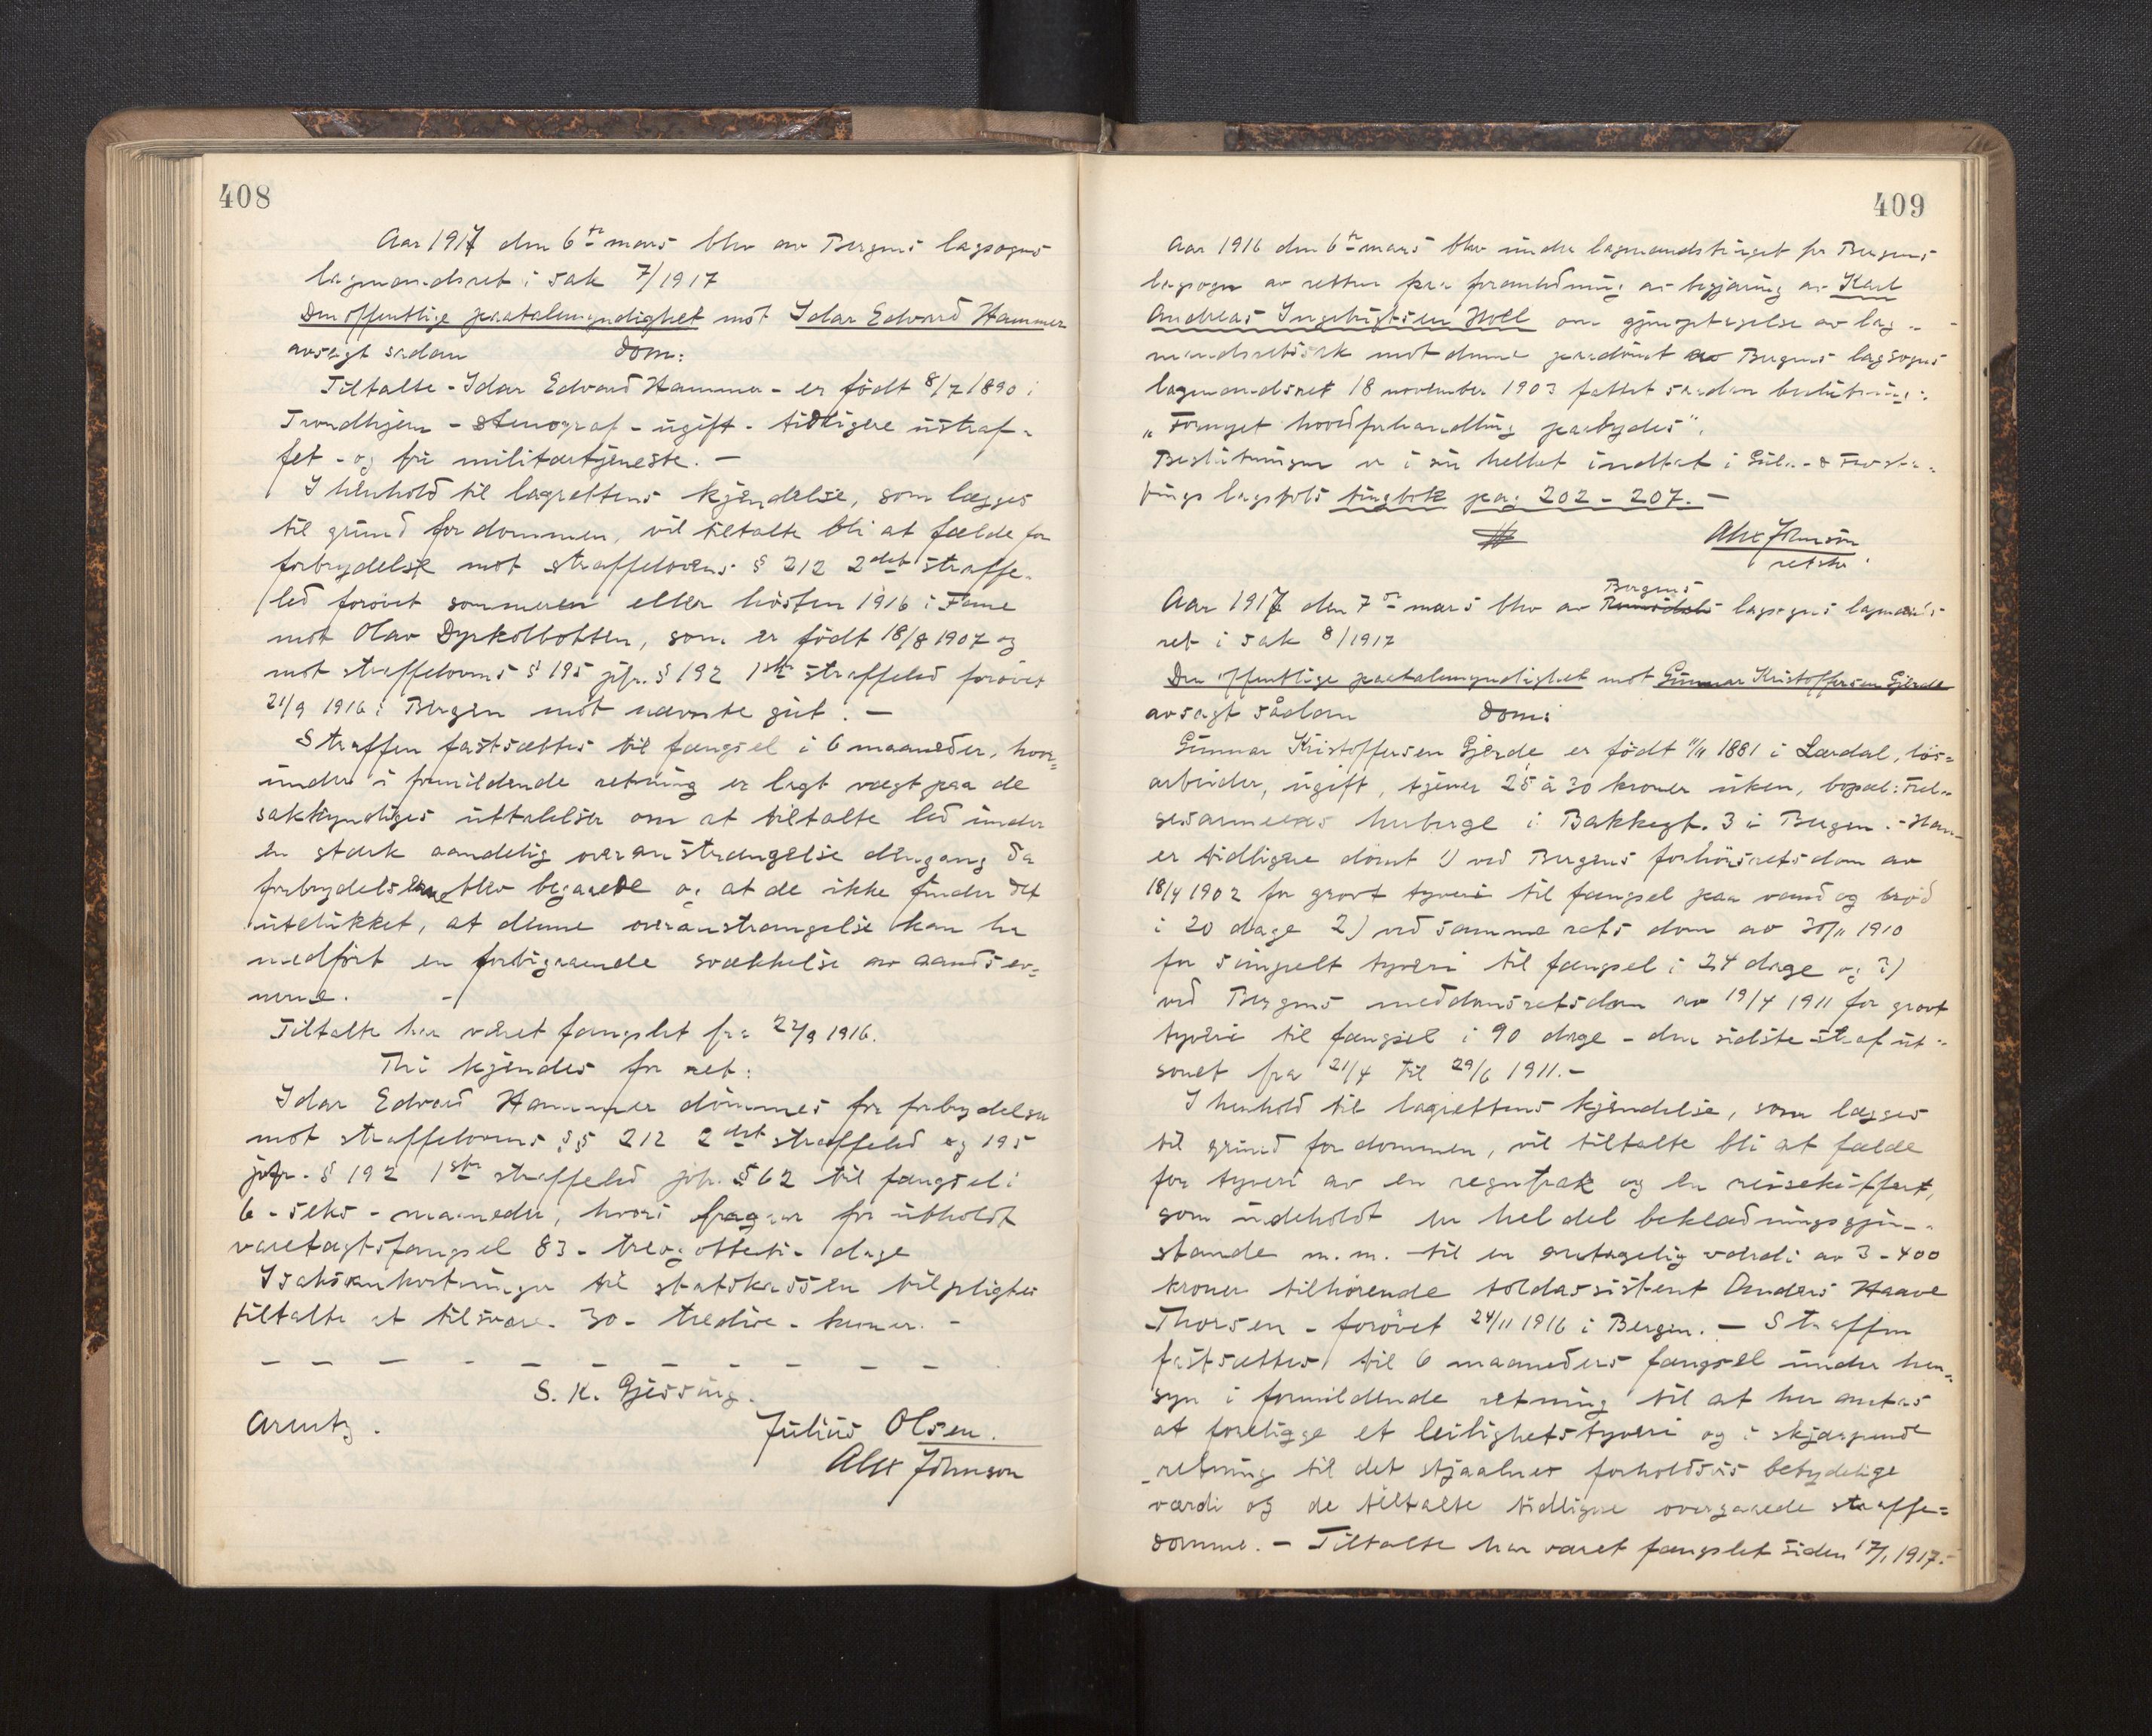 408
Aar 1917 den 6te mars blev av Bergens lagsogns
lagmandsret i sak 7/1917
Den offentlige paatalemyndighet mot Idar Edvard Hammer
avsagt saadan dom:
Tiltalte - Idar Edvard Hammer - er født 8/7 1890 i
Trondhjem - stenograf - ugift - tidligere ustraf-
fet - og fri militærtjeneste. -
I henhold til lagrettens kjendelse, som lægges
til grund for dommen, vil tiltalte bli at fælde for
forbrydelse mot straffelovens § 212 2det straffe-
led forøvet sommeren eller høsten 1916 i Fane
mot Olav Dyrkolbotten, som er født 18/8 1907 og
mot straffelovens § 195 jfr. § 192 1ste straffeled forøvet
21/9 1916 i Bergen mot nævnte gut. -
Straffen fastsættes til fængsel i 6 maaneder, hvor-
under i formildende retning er lagt vægt paa de
sakkyndiges uttalelser om at tiltalte led under
en stærk aandelig overanstrængelse dengang da
forbrydelserne blev begaaede og at de ikke finder det
utelukket, at denne overanstrængelse kan ha
medført en forbigaaende svækkelse av aandsev-
nerne. -
Tiltalte har været fængslet fra 22/9 1916.
Thi kjendes for ret:
Idar Edvard Hammer dømmes for forbrydelse
mot straffelovens §§ 212 2det straffeled og 195
jfr. § 192 1ste straffeled jfr. § 62 til fængsel i
6 - seks - maaneder, hvori fragaar for utholdt
varetægtsfængsel 83 - treogotteti - dage
I saksomkostninger til statskassen tilpligtes
tiltalte at tilsvare 30 - tredive - kroner. -
S. K. Gjessing.
Arentz.
Julius Olsen.
Alex Johnson
409
Aar 1916 den 6te mars blev under lagmandstinget for Bergens
lagsogn av retten paa foranledning av begjæring av Karl
Andreas Ingebrigtsen Holl om gjenoptagelse av lag-
mandsretssak mot denne paadømt av Bergens lagsogns
lagmandsret 18 november 1903 fattet saadan beslutning:
"Fornyet hovedforhandling paabydes".
Beslutningen er i sin helhet indtat i Gula- & Frosta-
tings lagstols tingbok pag. 202 - 207. -
Alex Johnson
retskr.
Aar 1917 den 7de mars blev av Bergens lagsogns lagmands-
ret i sak 8/1917
Den offentlige paatalemyndighet mot Gunnar Kristoffersen Gjerde
avsagt sådan dom:
Gunnar Kristoffersen Gjerde er født 11/11 1881 i Lærdal, løs-
arbeider, ugift, tjener 25 à 30 kroner uken, bopæl: Frel-
sesarmeens herberge i Bakkegt. 3 i Bergen. - Han
er tidligere dømt 1) ved Bergens forhørsretsdom av
18/4 1902 for grovt tyveri til fængsel paa vand og brød
i 20 dage 2) ved samme rets dom av 30/11 1910
for simpelt tyveri til fængsel i 24 dage og 3)
ved Bergens meddomsretsdom av 19/4 1911 for grovt
tyveri til fængsel i 90 dage - den sidste straf ut-
sonet fra 21/4 til 29/6 1911. -
I henhold til lagrettens kjendelse, som lægges
til grund for dommen, vil tiltalte bli at fælde
for tyveri av en regnfrak og en reisekuffert,
som indeholdt en hel del beklædningsgjen-
stande m. m. til en antagelig værdi av 3-400
kroner tilhørende toldassistent Anders Haave
Thorsen - forøvet 24/11 1916 i Bergen. - Straffen
fastsættes til 6 maaneders fængsel under hen-
syn i formildende retning til at her antas
at foreligge et leilighetstyveri og i skjærpende
retning til det stjaalnes forholdsvis betydelige
værdi og de tiltalte tidligere overgaaede straffe-
domme. - Tiltalte har været fængslet siden 17/1 1917. -